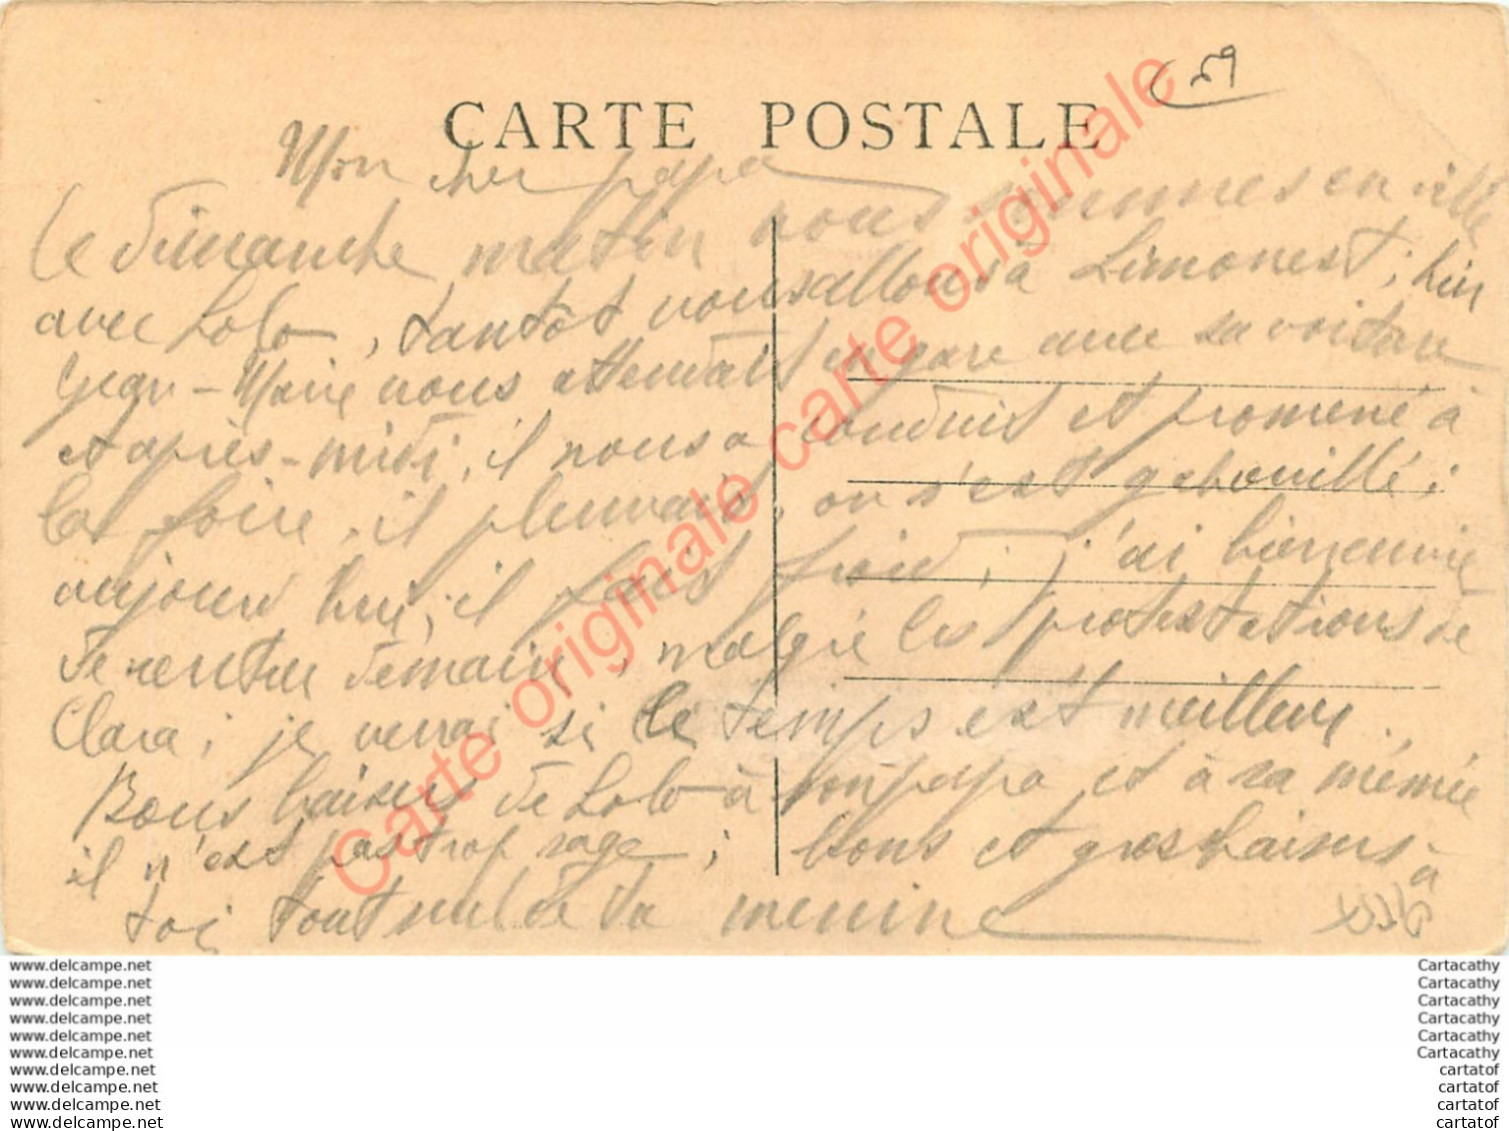 59
CARTE POSTALE
Mon cher papa
Ce dimanche matin nous sommes en ville
avec Lolo, tantôt nous allons à Limonest; hier
Jean-Marie nous attendait en gare avec sa voiture
et après-midi, il nous a conduit et promené à
la foire, il pleuvait, on s'est gabouillé;
aujourd'hui, il fait froid; j'ai bien envie
de rentrer demain, malgré les protestations de
Clara; je verrai si le temps est meilleur.
Bons baisers de Lolo à son papa et à sa mémée
il n'est pas trop sage; bons et gros baisers à
toi tout seul de ta menine
Carte originale carte originale
www.delcampe.net
www.delcampe.net
www.delcampe.net
www.delcampe.net
www.delcampe.net
www.delcampe.net
www.delcampe.net
www.delcampe.net
www.delcampe.net
www.delcampe.net
Cartacathy
Cartacathy
Cartacathy
Cartacathy
Cartacathy
Cartacathy
cartatof
cartatof
cartatof
cartatof